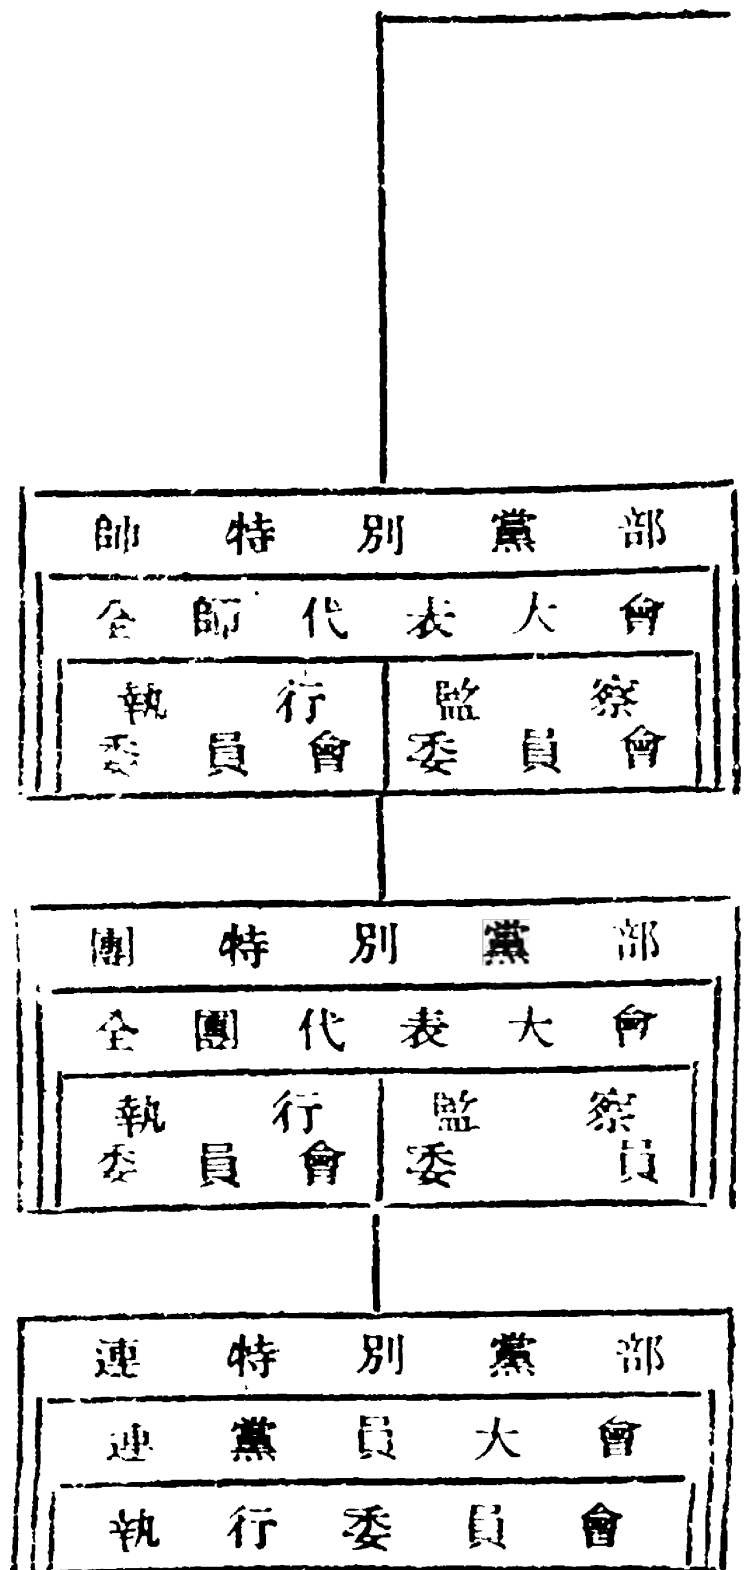 師特別黨部
全師代表大會
執行
委員會
監察
委員會
團特別黨部
全團代表大會
執行
委員會
監察
委員
連特別黨部
連黨員大會
執行委員會